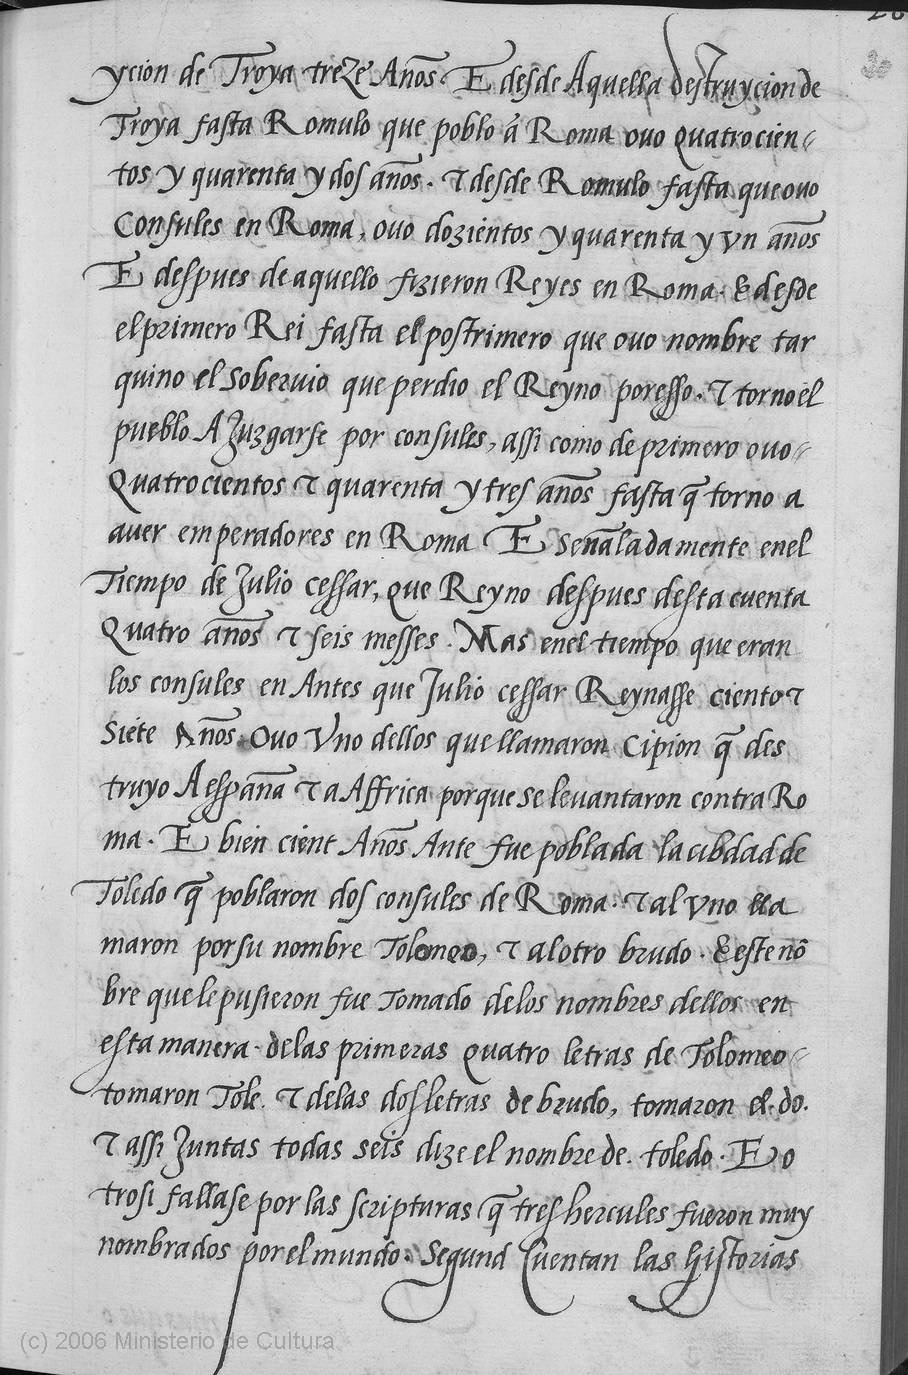 26
30
ycion de Troya treze Años. E desde Aquella destruycion de
Troya fasta Romulo que poblo á Roma ovo quatrocien-
tos y quarenta y dos años. τ desde Romulo fasta que ovo
Consules en Roma, ovo dozientos y quarenta y vn años
E despues de aquello fizieron Reyes en Roma. & desde
el primero Rei fasta el postrimero que ovo nombre tar
quino el sobervio que perdio el Reyno poresso. τ torno el
pueblo A Juzgarse por consules, assi como de primero ovo-
Quatrocientos τ quarenta y tres años fasta q̃ torno a
aver emperadores en Roma E señaladamente enel
Tiempo de Julio cessar, que Reyno despues desta cuenta
Quatro años τ seis messes. Mas enel tiempo que eran
los consules en Antes que Julio cessar Reynasse ciento τ
siete Años. Ovo Vno dellos que llamaron Cipion q̃ des
truyo A españa τ a Affrica porque se levantaron contra Ro
ma. E bien cient Años Ante fue poblada la cibdad de
Toledo q̃ poblaron dos consules de Roma. τ al vno lla
maron por su nombre Tolomeo, τ al otro brudo. & este nõ
bre que le pusieron fue Tomado delos nombres dellos en
esta manera. delas primeras quatro letras de Tolomeo-
tomaron Tole. τ delas dos letras de brudo, tomaron el. do.
τ assi Juntas todas seis dize el nombre de. toledo. E o
trosi fallase por las scripturas q̃ tres hercules fueron muy
nombrados por el mundo. Segund Cuentan las historias
(c) 2006 Ministerio de Cultura